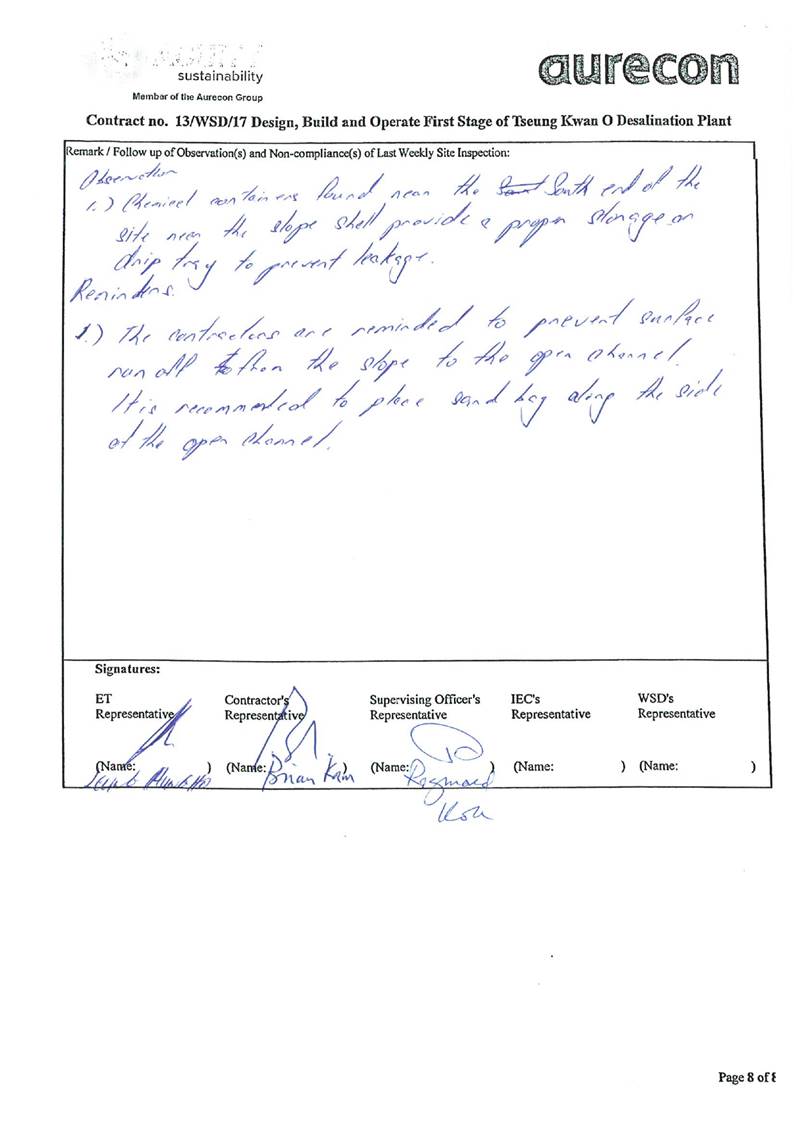 sustainability
Member of the Aurecon Group
aurecon
Contract no. 13/WSD/17 Design, Build and Operate First Stage of Tseung Kwan O Desalination Plant
Remark / Follow up of Observation(s) and Non-compliance(s) of Last Weekly Site Inspection:
Observation
1.) Chemical containers found near the South end of the
site near the slope shall provide a proper storage or
drip tray to prevent leakage.
Reminders.
1.) The contractors are reminded to prevent surface
run off from the slope to the open channel.
It is recommended to place sand bag along the side
of the open channel.
Signatures:
ET Representative
Contractor's Representative
Supervising Officer's Representative
IEC's Representative
WSD's Representative
(Name: )
(Name: Brian Kam )
(Name: Raymond )
(Name: )
(Name: )
Page 8 of 8